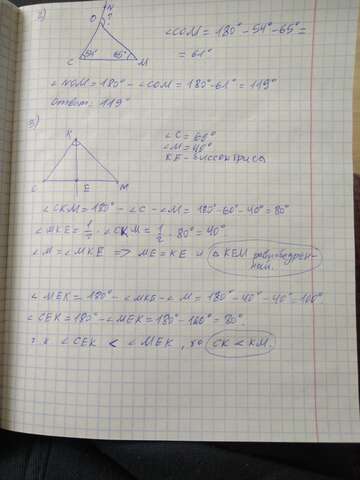 2)
N
O ?
54° 65°
C M
∠COM = 180° - 54° - 65° =
= 61°
∠NOM = 180° - ∠COM = 180° - 61° = 119°
Ответ: 119°
3)
K
C E M
∠C = 60°
∠M = 40°
KE - биссектриса
∠CKM = 180° - ∠C - ∠M = 180° - 60° - 40° = 80°
∠MKE = 1/2 · ∠CKM = 1/2 · 80° = 40°
∠M = ∠MKE => ME = KE и △KEM равнобедрен-
ный.
∠MEK = 180° - ∠MKE - ∠M = 180° - 40° - 40° = 100°.
∠CEK = 180° - ∠MEK = 180° - 100° = 80°.
т.к ∠CEK < ∠MEK, то CK < KM.